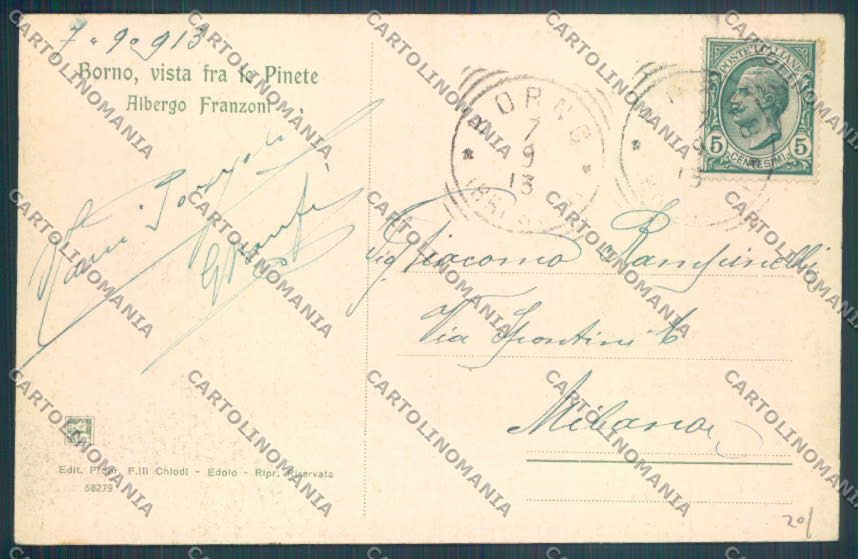 7 = 9 = 913
Borno, vista fra le Pinete
Albergo Franzoni
Edit. F.lli Chiodi - Edolo - Ripr. Riservata
58279
BORNO
7
9
13
POSTE ITALIANE
5 CENTESIMI 5
Sig Giacomo Rampinelli
Via Spontini 6
Milano
20/
CARTOLINOMANIA